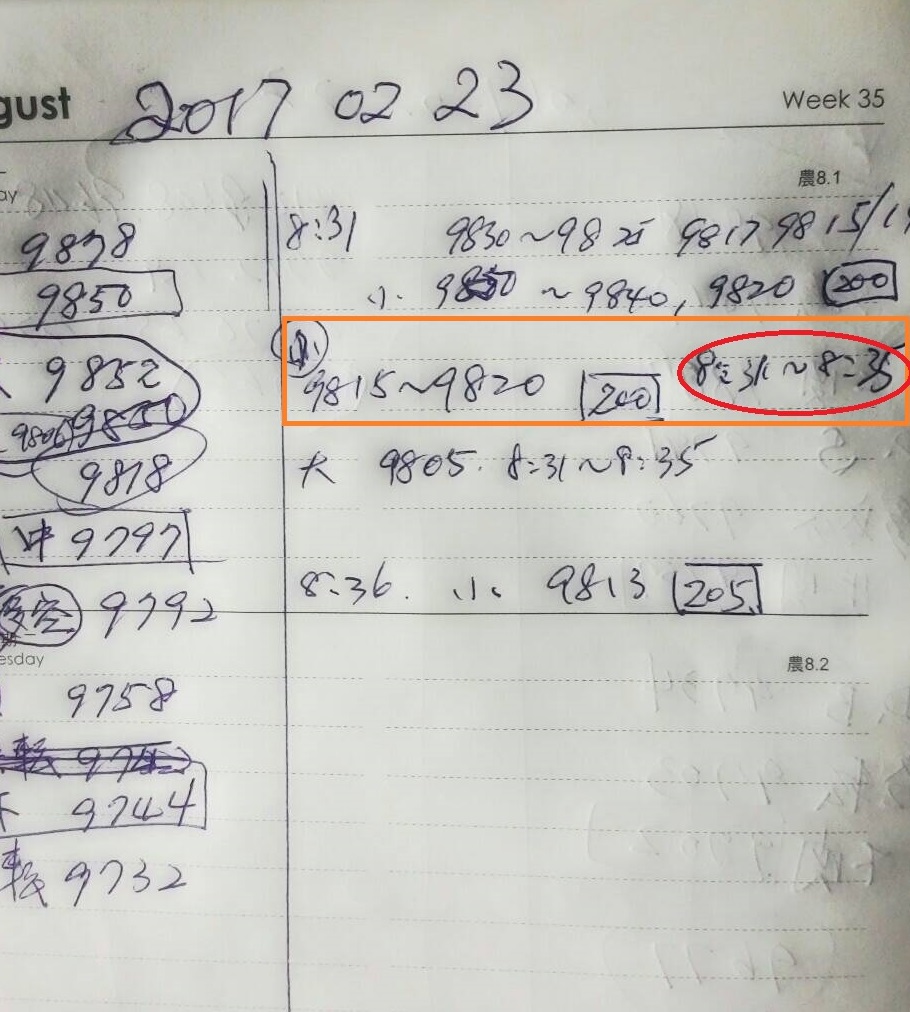 gust 2017 02 23 Week 35
ay
農8.1
9838
9850
9852
9806 9850
9818
冲 9797
多空 9792
esday
9758
轉
9744
轉 9732
8:31 9830~9825 9817 9815/1
小 98 ~9840, 9820 200
小
9815~9820 200 8:31~8:35
大 9805. 8:31~8:35
8:36. 小 9813 205
農8.2